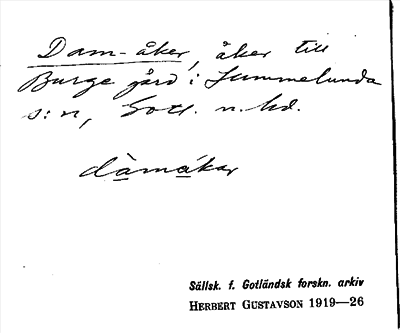 Dam-åker, åker till
Burge gård i Lummelunda
s:n, Gotl. n. hd.
dàmákar
Sällsk. f. Gotländsk forskn. arkiv
HERBERT GUSTAVSON 1919—26